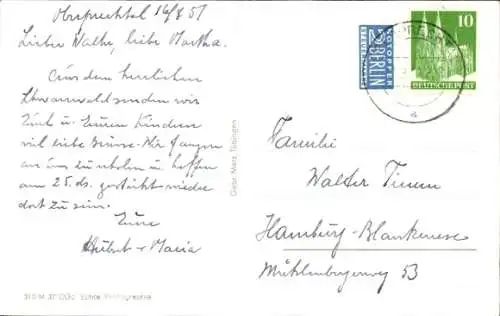 Oberprechtal 16/8 51
Lieber Walter, liebe Martha.
Aus dem herrlichen
Schwarzwald senden wir
Euch u. Euren Kindern
viel liebe Grüsse. Wir fangen
an uns zu erholen u. hoffen
am 25. ds. gestärkt wieder
dort zu sein.
Eure
Hubert + Maria
Gebr. Metz, Tübingen
NOTOPFER
2 BERLIN
STEUERMARKE
10
DEUTSCHE POST
a
Familie
Walter Timm
Hamburg-Blankenese
Mühlenbergerweg 53